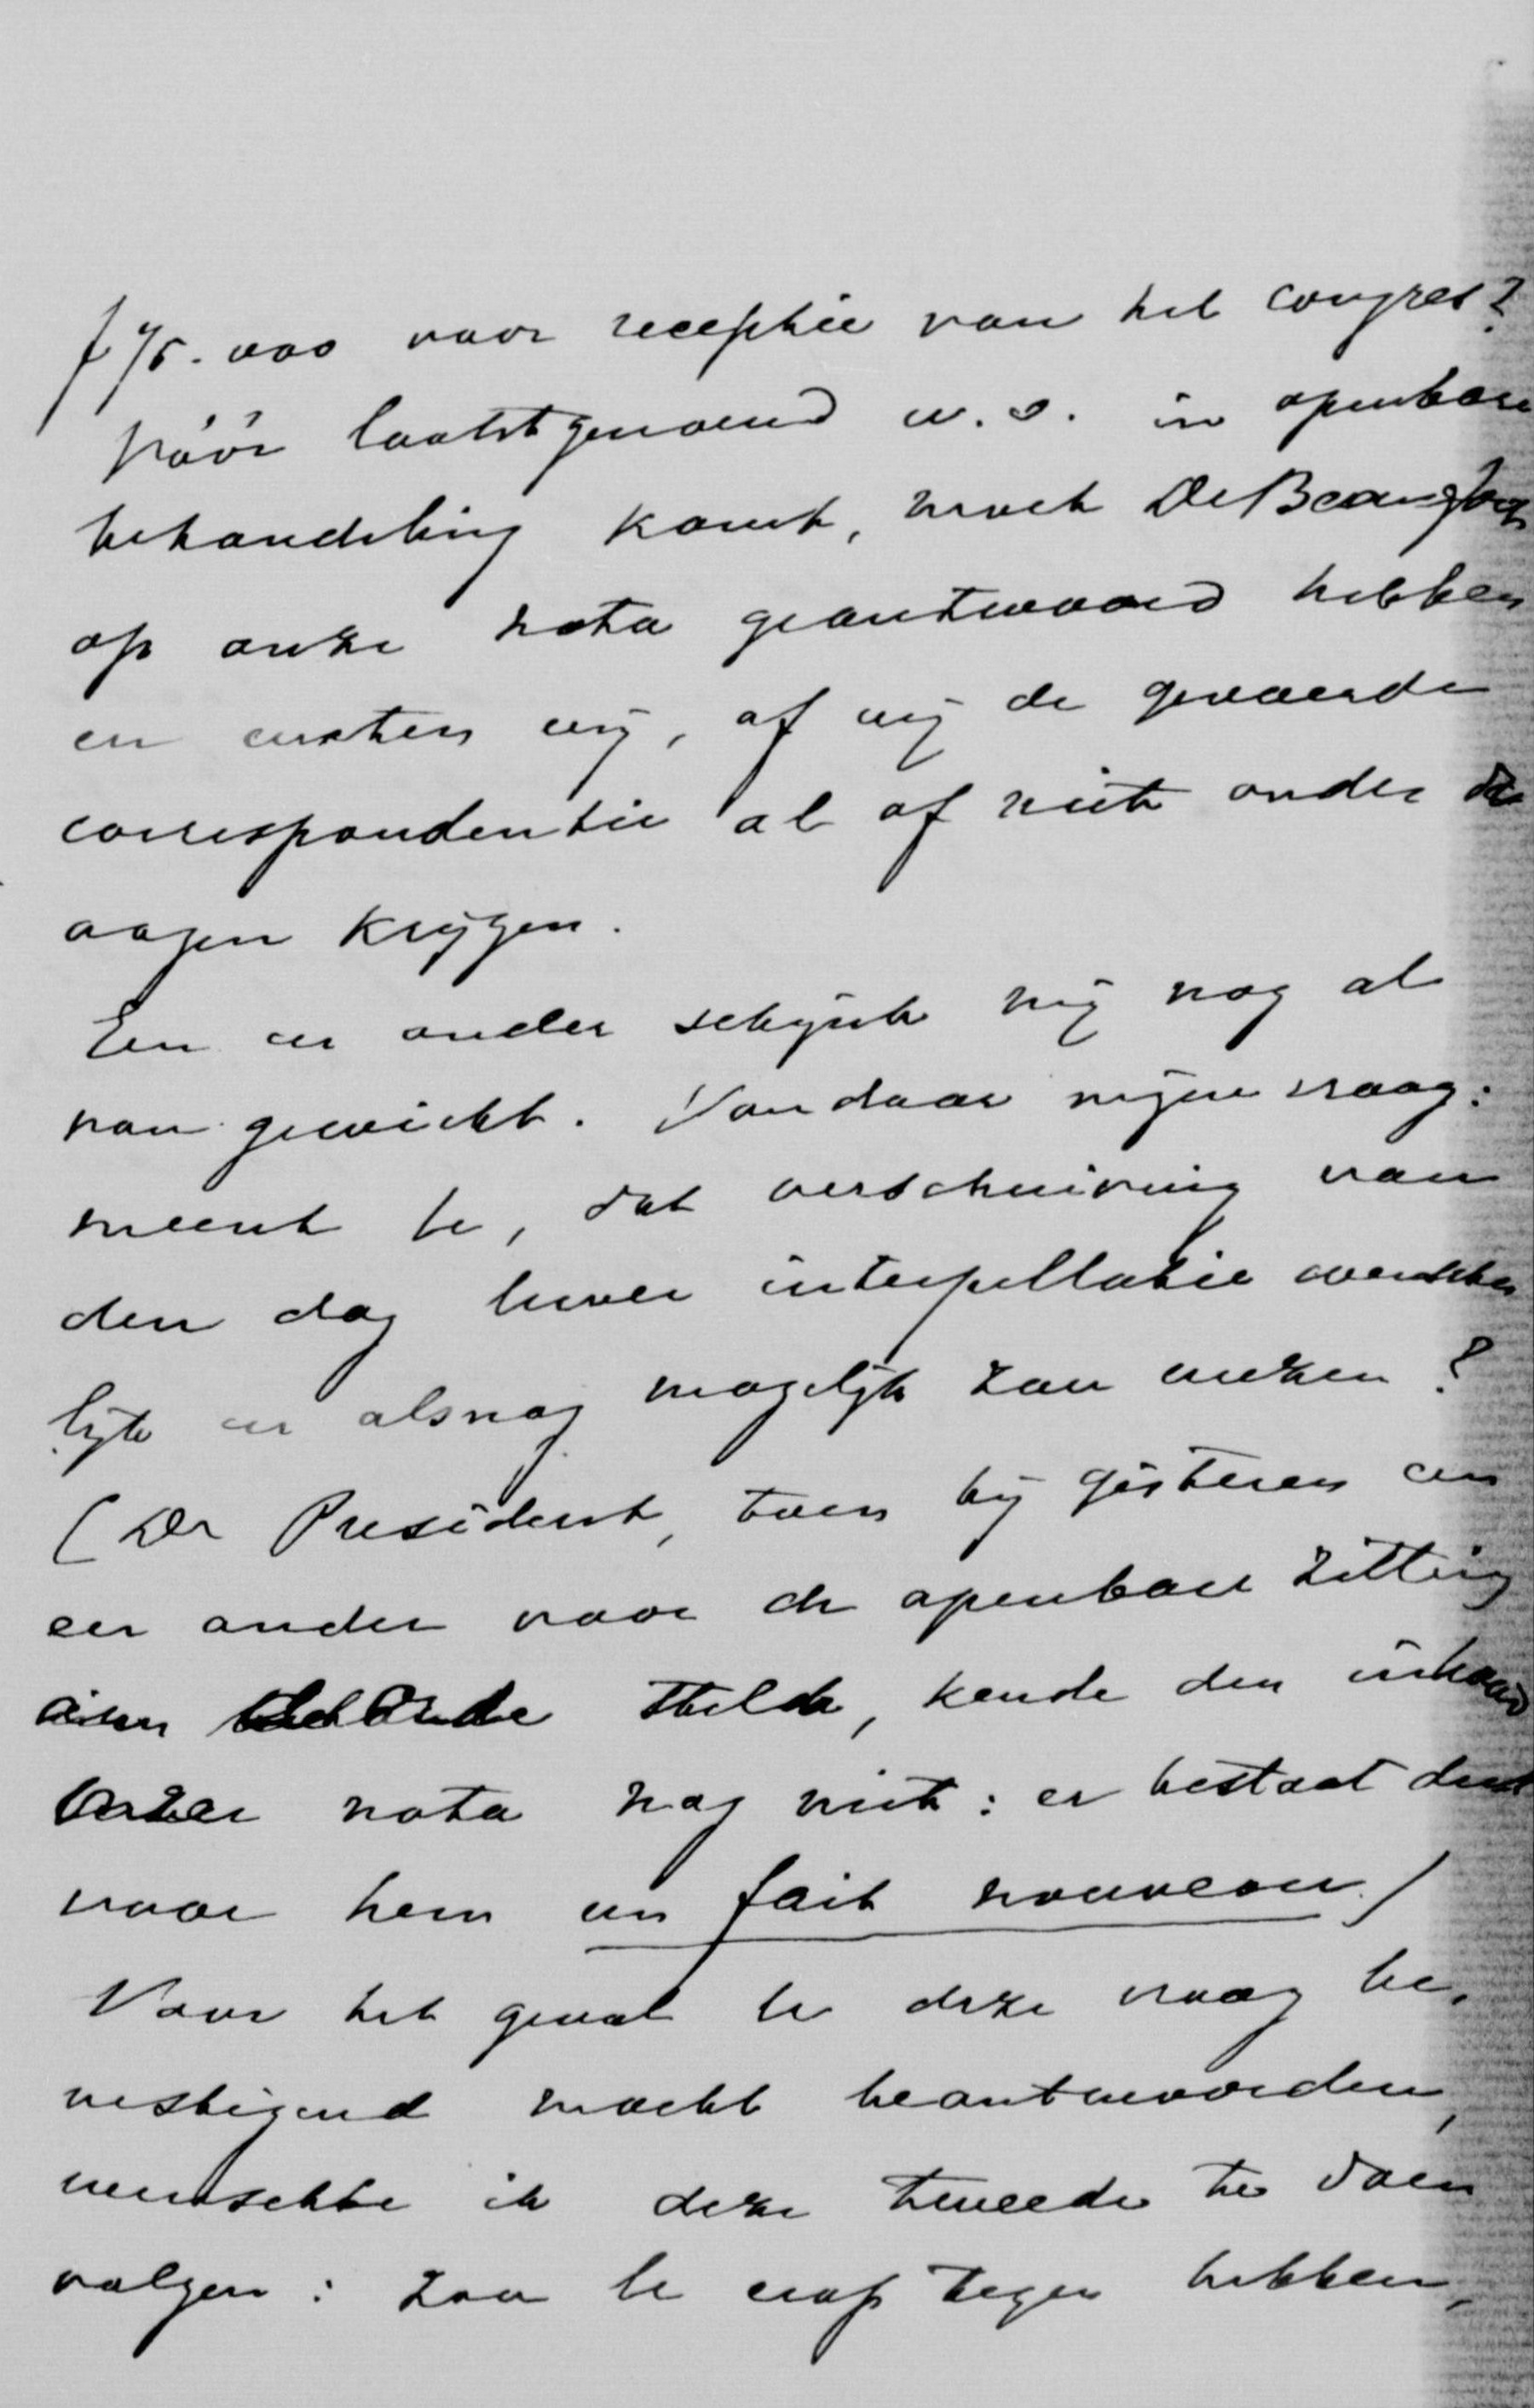 f 75.000 voor receptie van het congres?
Vóór laatstgenoemd w.o. in openbare
behandeling komt, moet De Beaufort
op onze nota geantwoord hebben
en weten wij, of wij de gewenschte
correspondentie al of niet onder de
oogen krijgen.
Een en ander schijnt mij nog al
van gewicht. Vandaar mijne vraag:
meent U, dat verschuiving van
den dag Uwer interpellatie wensche
lijk en alsnog mogelijk zou wezen?
(De President, toen hij gisteren een
en ander voor de openbare zitting
stelde, kende den inhoud
onzer nota nog niet: er bestaat dus
voor hem un fait nouveau)
Voor het geval U deze vraag be,
vestigend mocht beantwoorden,
wenschte ik deze tweede te doen
volgen: zou U erop tegen hebben,